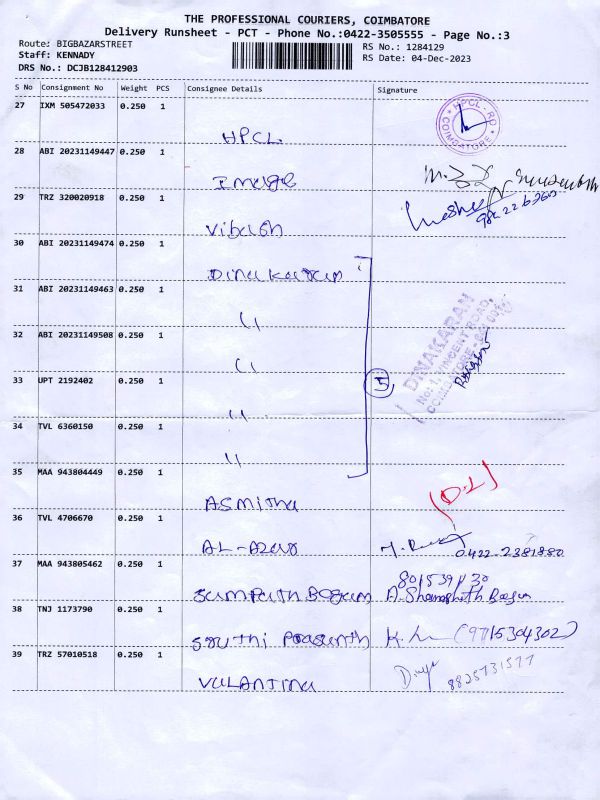 THE PROFESSIONAL COURIERS, COIMBATORE
Delivery Runsheet - PCT - Phone No.:0422-3505555 - Page No.:3
Route: BIGBAZARSTREET
Staff: KENNADY
DRS No.: DCJB128412903
RS No.: 1284129
RS Date: 04-Dec-2023
S No Consignment No Weight PCS Consignee Details Signature
27 IXM 505472033 0.250 1
HPCL
HPCL - RO
COIMBATORE
28 ABI 20231149447 0.250 1
Image
29 TRZ 320020918 0.250 1
Vibash
30 ABI 20231149474 0.250 1
Dinakaran
31 ABI 20231149463 0.250 1
"
32 ABI 20231149508 0.250 1
"
DINAKARAN
No: 1, VINCENT ROAD,
COIMBATORE -
33 UPT 2192402 0.250 1
"
5
34 TVL 6360150 0.250 1
"
35 MAA 943804449 0.250 1
Asmitha
(D.L)
36 TVL 4706670 0.250 1
AL-Azar
0422-2381880
37 MAA 943805462 0.250 1
Sampath Begum
38 TNJ 1173790 0.250 1
Sruthi Prasanth
(9715304302)
39 TRZ 57010518 0.250 1
Valantina